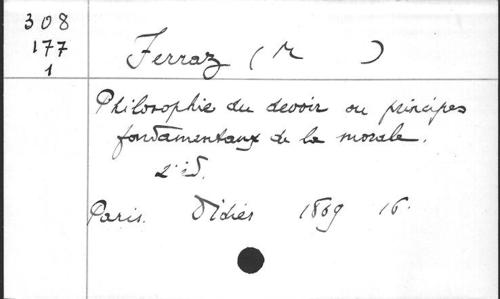 308
177
1
Ferraz (M )
Philosophie du devoir ou principes
fondamentaux de la morale.
2e éd.
Paris. Didier 1869 16.